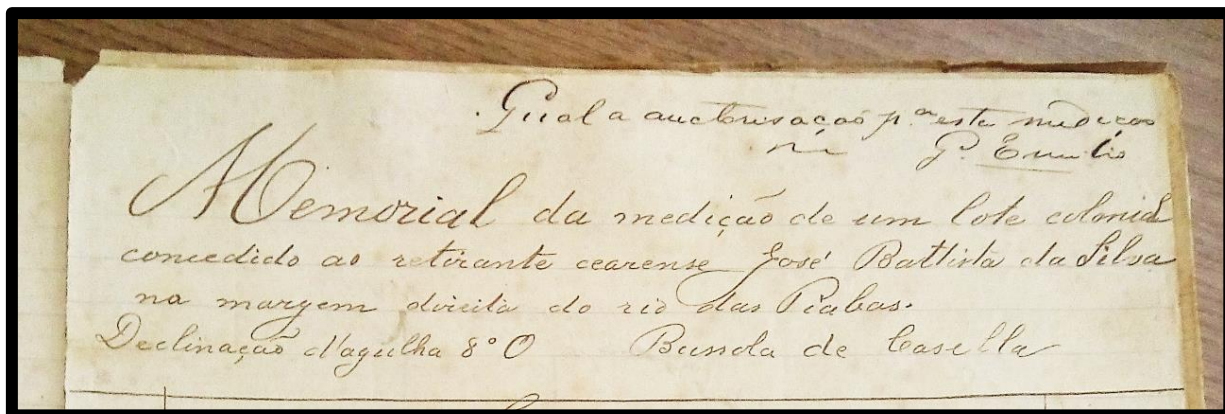 Qual a auctorisação p.ª esta medição
G. Emilio
Memorial da medição de um lote colonial
concedido ao retirante cearense José Battista da Silva
na margem direita do rio das Piabas.
Declinação d'agulha 8° O Bussola de Casella